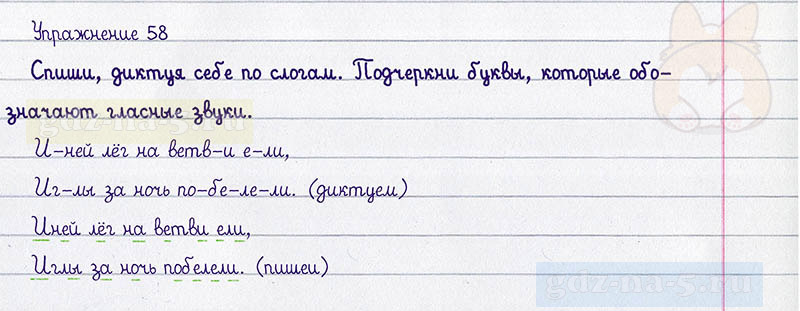 Упражнение 58
Спиши, диктуя себе по слогам. Подчеркни буквы, которые обо-
значают гласные звуки.
gdz-na-5.ru
И-ней лёг на ветв-и е-ли,
Иг-лы за ночь по-бе-ле-ли. (диктуем)
Иней лёг на ветви ели,
Иглы за ночь побелели. (пишеи)
gdz-na-5.ru